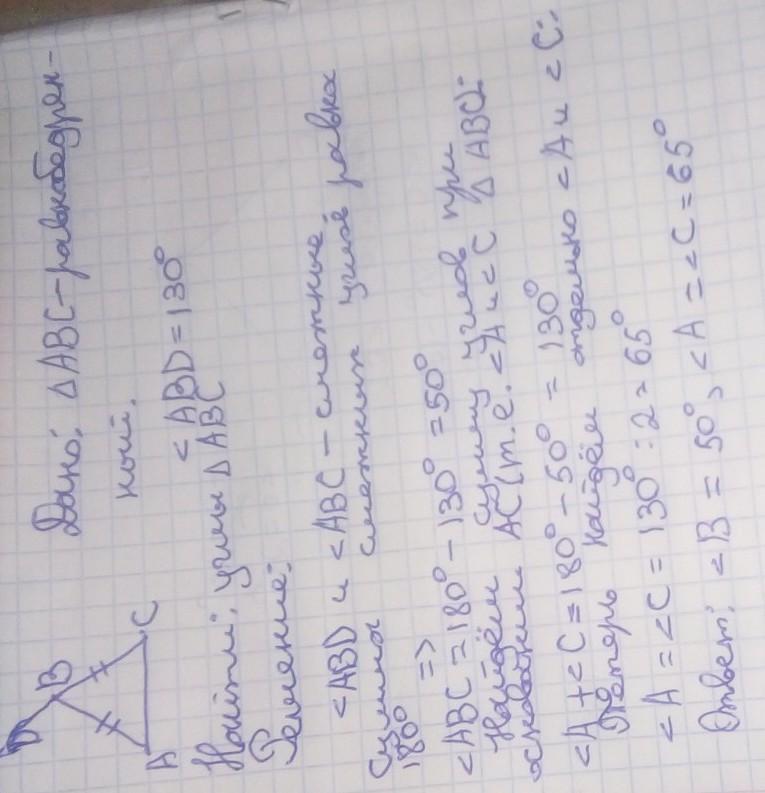 D
B
A
C
Дано: △ABC-равнобедрен-
ный.
<ABD=130°
Найти: углы △ABC
Решение:
<ABD и <ABC - смежные,
Сумма смежных углов равна
180° =>
<ABC=180°-130°=50°
Найдём сумму углов при
основании AC(т.е. <A и <C △ABC):
<A+<C=180°-50° = 130°
Теперь найдём отдельно <A и <C:
<A=<C=130°:2=65°
Ответ: <B=50°, <A=<C=65°